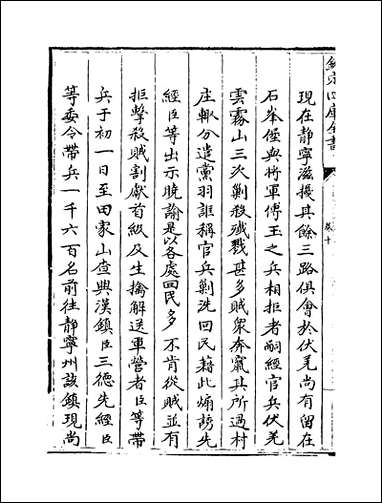 欽定四庫全書
現在靜寧滋擾其餘三路俱會於伏羌尚有留在
石峯徑與將軍傅玉之兵相拒者嗣經官兵伏羌
雲霧山三次剿殺殲戮甚多賊衆奔竄其所過村
庄輙分遣黨羽誑稱官兵剿洗回民藉此煽誘先
經臣等出示曉諭是以各處回民多不肯從賊並有
拒擊殺賊割獻首級及生擒解送軍營者臣等帶
兵于初一日至田家山查興漢鎮臣三德先經臣
等委令帶兵一千六百名前往靜寧州該鎮現尚